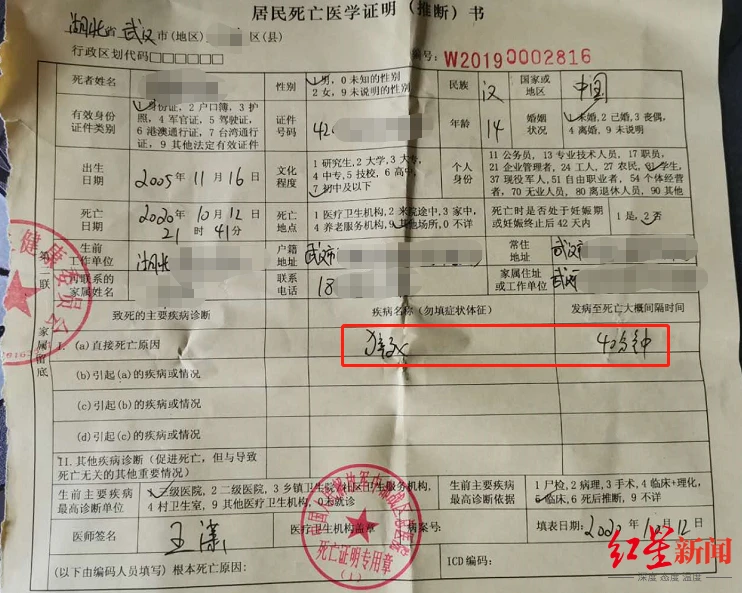 居民死亡医学证明(推断)书
湖北省 武汉 市(地区) 区(县)
行政区划代码□□□□□□
编号: W20190002816
死者姓名
性别
1 男, 0 未知的性别
2 女, 9 未说明的性别
民族
汉
国家或地区
中国
有效身份证件类别
1 身份证, 2 户口簿, 3 护照, 4 军官证, 5 驾驶证, 6 港澳通行证, 7 台湾通行证, 9 其他法定有效证件
证件号码
42
年龄
14
婚姻状况
1 未婚, 2 已婚, 3 丧偶, 4 离婚, 9 未说明
出生日期
2005 年 11 月 16 日
文化程度
1 研究生, 2 大学, 3 大专, 4 中专, 5 技校, 6 高中, 7 初中及以下
个人身份
11 公务员, 13 专业技术人员, 17 职员, 21 企业管理者, 24 工人, 27 农民, 31 学生, 37 现役军人, 51 自由职业者, 54 个体经营者, 70 无业人员, 80 离退休人员, 90 其他
死亡日期
2020 年 10 月 12 日
21 时 41 分
死亡地点
1 医疗卫生机构, 2 来院途中, 3 家中, 4 养老服务机构, 9 其他场所, 0 不详
死亡时是否处于妊娠期或妊娠终止后 42 天内
1 是, 2 否
生前工作单位
湖北
户籍地址
武汉市
常住地址
武汉市
可联系的家属姓名
联系电话
18
家属住址或工作单位
武汉
第二联 家属留底
致死的主要疾病诊断
疾病名称 (勿填症状体征)
发病至死亡大概间隔时间
I. (a) 直接死亡原因
猝死
40分钟
(b) 引起(a)的疾病或情况
(c) 引起(b)的疾病或情况
(d) 引起(c)的疾病或情况
II. 其他疾病诊断(促进死亡,但与导致死亡无关的其他重要情况)
生前主要疾病最高诊断单位
1 三级医院, 2 二级医院, 3 乡镇卫生院/社区卫生服务机构, 4 村卫生室, 9 其他医疗卫生机构, 0 未就诊
生前主要疾病最高诊断依据
1 尸检, 2 病理, 3 手术, 4 临床+理化, 5 临床, 6 死后推断, 9 不详
医师签名
医疗卫生机构盖章
病案号:
填表日期: 2020 年 10 月 12 日
(以下由编码人员填写) 根本死亡原因:
ICD 编码:
健康委员会
死亡证明专用章
(1)
红星新闻
深度 态度 温度